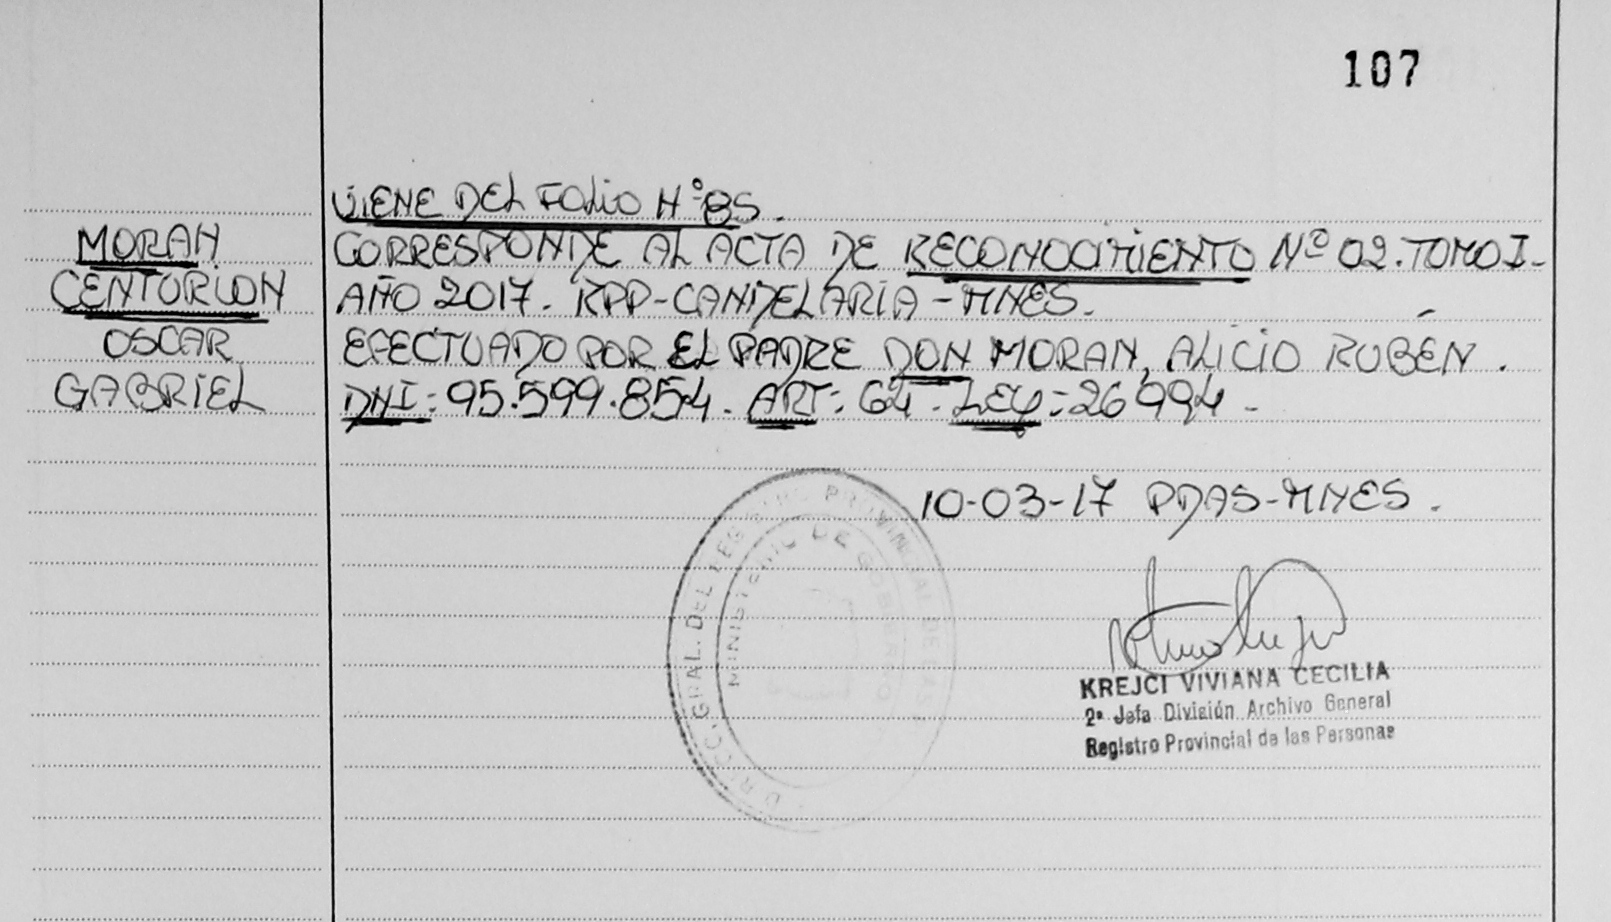 107
VIENE DEL FOLIO Nº 85.
MORAN
CENTURION
OSCAR
GABRIEL
CORRESPONDE AL ACTA DE RECONOCIMIENTO Nº 02. TOMO I-
AÑO 2017. RPP-CANDELARIA-MNES.
EFECTUADO POR EL PADRE DON MORAN, ALICIO RUBÉN.
DNI: 95.599.854. ART: 64. LEY: 26994-
10-03-17 PDAS-MNES.
DIRECC. GRAL. DEL REGISTRO PROVINCIAL DE LAS
MINISTERIO DE GOBIERNO
KREJCI VIVIANA CECILIA
2ª Jefa División Archivo General
Registro Provincial de las Personas